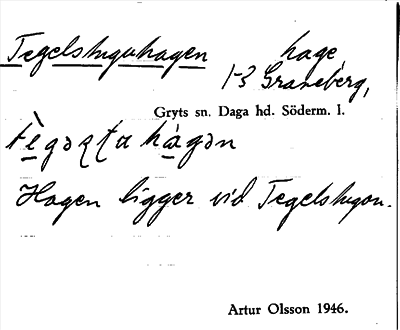 Tegelstuguhagen hage
1-3 Graneberg,
Gryts sn. Daga hd. Söderm. l.
hàgən
Hagen ligger vid Tegelstugan.
Artur Olsson 1946.